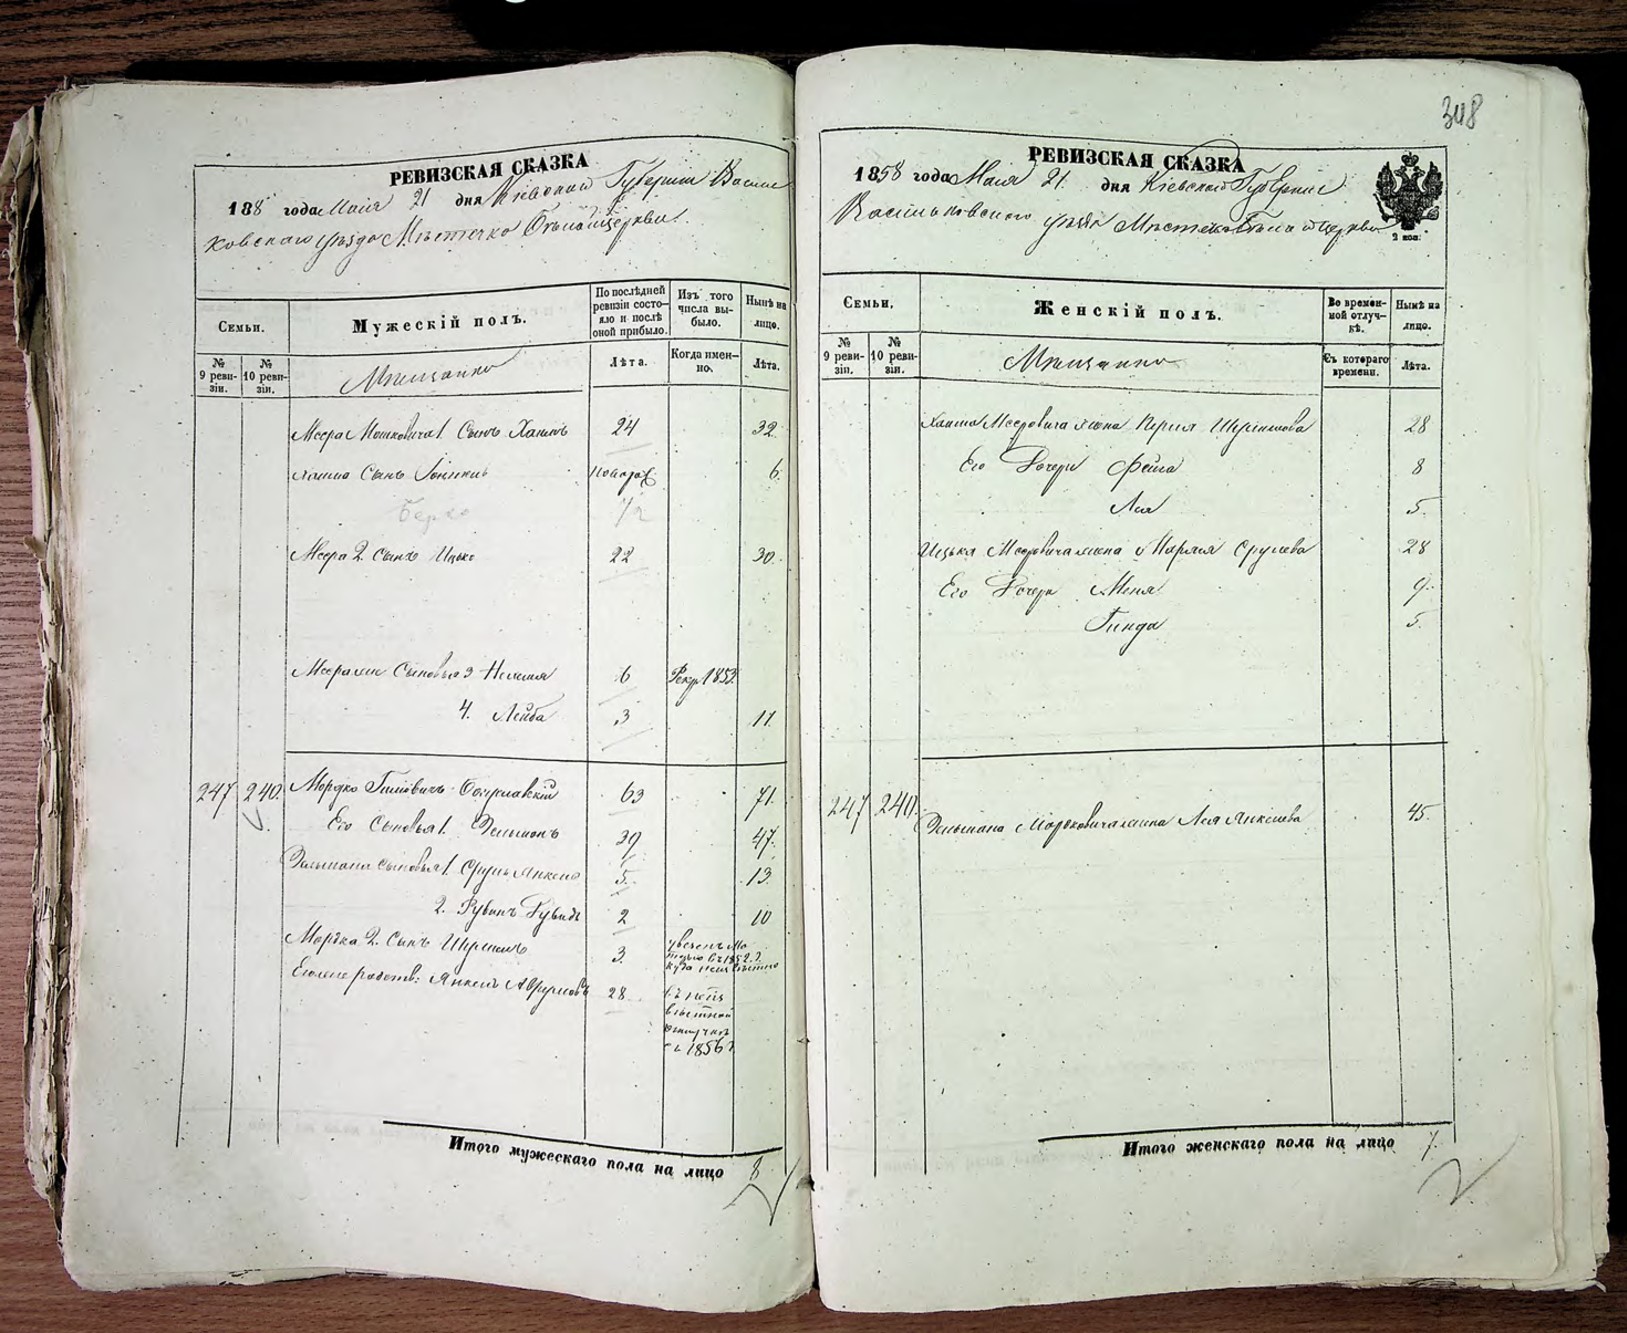 348
РЕВИЗСКАЯ СКАЗКА
188 года Мая 21 дня Кіевской Губерніи Василь
ковскаго уѣзда Мѣстечка Бѣлой Церкви.
Семьи.
Мужескій полъ.
По послѣдней ревизіи состояло и послѣ оной прибыло.
Изъ того числа выбыло.
Нынѣ на лицо.
№ 9 ревизіи.
№ 10 ревизіи.
Мѣщане
Лѣта.
Когда именно.
Лѣта.
Меера Мошковича 1. Сынъ Хаимъ 24 32.
Хаима Сынъ 6.
Берко 1/2
Меера 2. Сынъ Ицько 22 30.
Сыновья 3 6 Рекр. 1853.
4. Лейба 3 11.
247 240. Мордко 63 71.
Его Сыновья 1. Зельманъ 39 47.
Зельмана Сыновья 1. Сруль Янкель 5. 13
2. Рувинъ 2 10
Мордка 2. Сынъ 3. въ 1852 г. куда неизвѣстно
Янкель 28 въ неизвѣстной отлучкѣ съ 1856 г.
Итого мужескаго пола на лицо 8
РЕВИЗСКАЯ СКАЗКА
1858 года Мая 21. дня Кіевской Губерніи
Васильковскаго уѣзда Мѣстечка Бѣлой Церкви
2 коп.
Семьи.
Женскій полъ.
Во временной отлучкѣ.
Нынѣ на лицо.
№ 9 ревизіи.
№ 10 ревизіи.
Мѣщанки
Съ котораго времени.
Лѣта.
Хаима Мееровича жена Перля 28
Его Дочери Фейга 8
Лея 5.
Ицька Мееровича жена Срулева 28
Его Дочери Меня 9.
Гинда 5.
247 240. Зельмана Мордковича жена Лея Янкелева 45.
Итого женскаго пола на лицо 7.